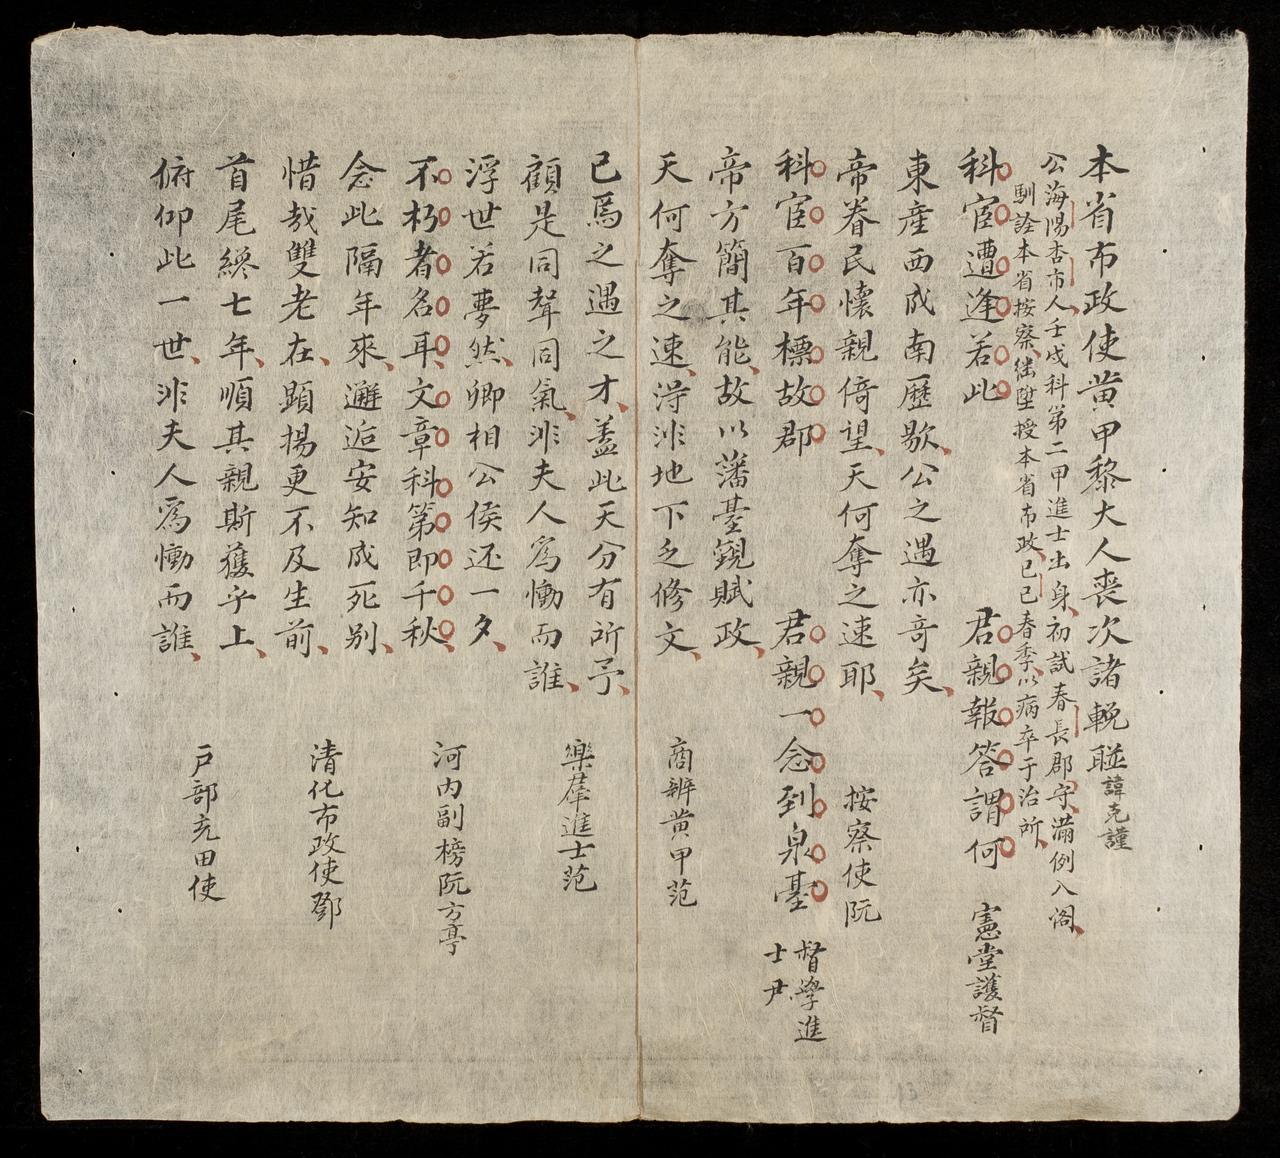 本省布政使黃甲黎大人喪次諸輓聯 諱克謹
公海陽杏市人壬戌科第二甲進士出身初試春長郡守滿例入閣
馴詮本省按察繼陞授本省布政己巳春季以病卒于治所
科宦遭逢若此 君親報答謂何 憲堂護督
東産西成南歷歇公之遇亦奇矣
帝眷民懷親倚望天何奪之速耶 按察使阮
科宦百年標故郡 君親一念到泉臺 督學進士尹
帝方簡其能故以藩臺觀賦政
天何奪之速得非地下乏修文 商辨黃甲范
已焉之遇之才盖此天分有所予
顧是同聲同氣非夫人爲慟而誰 樂莑進士范
浮世若夢然卿相公侯还一夕
不朽者名耳文章科第即千秋 河内副榜阮方亭
念此隔年來邂逅安知成死别
惜哉雙老在顕揚更不及生前 清化布政使鄧
首尾纔七年順其親斯獲乎上
俯仰此一世非夫人爲慟而誰 户部充田使